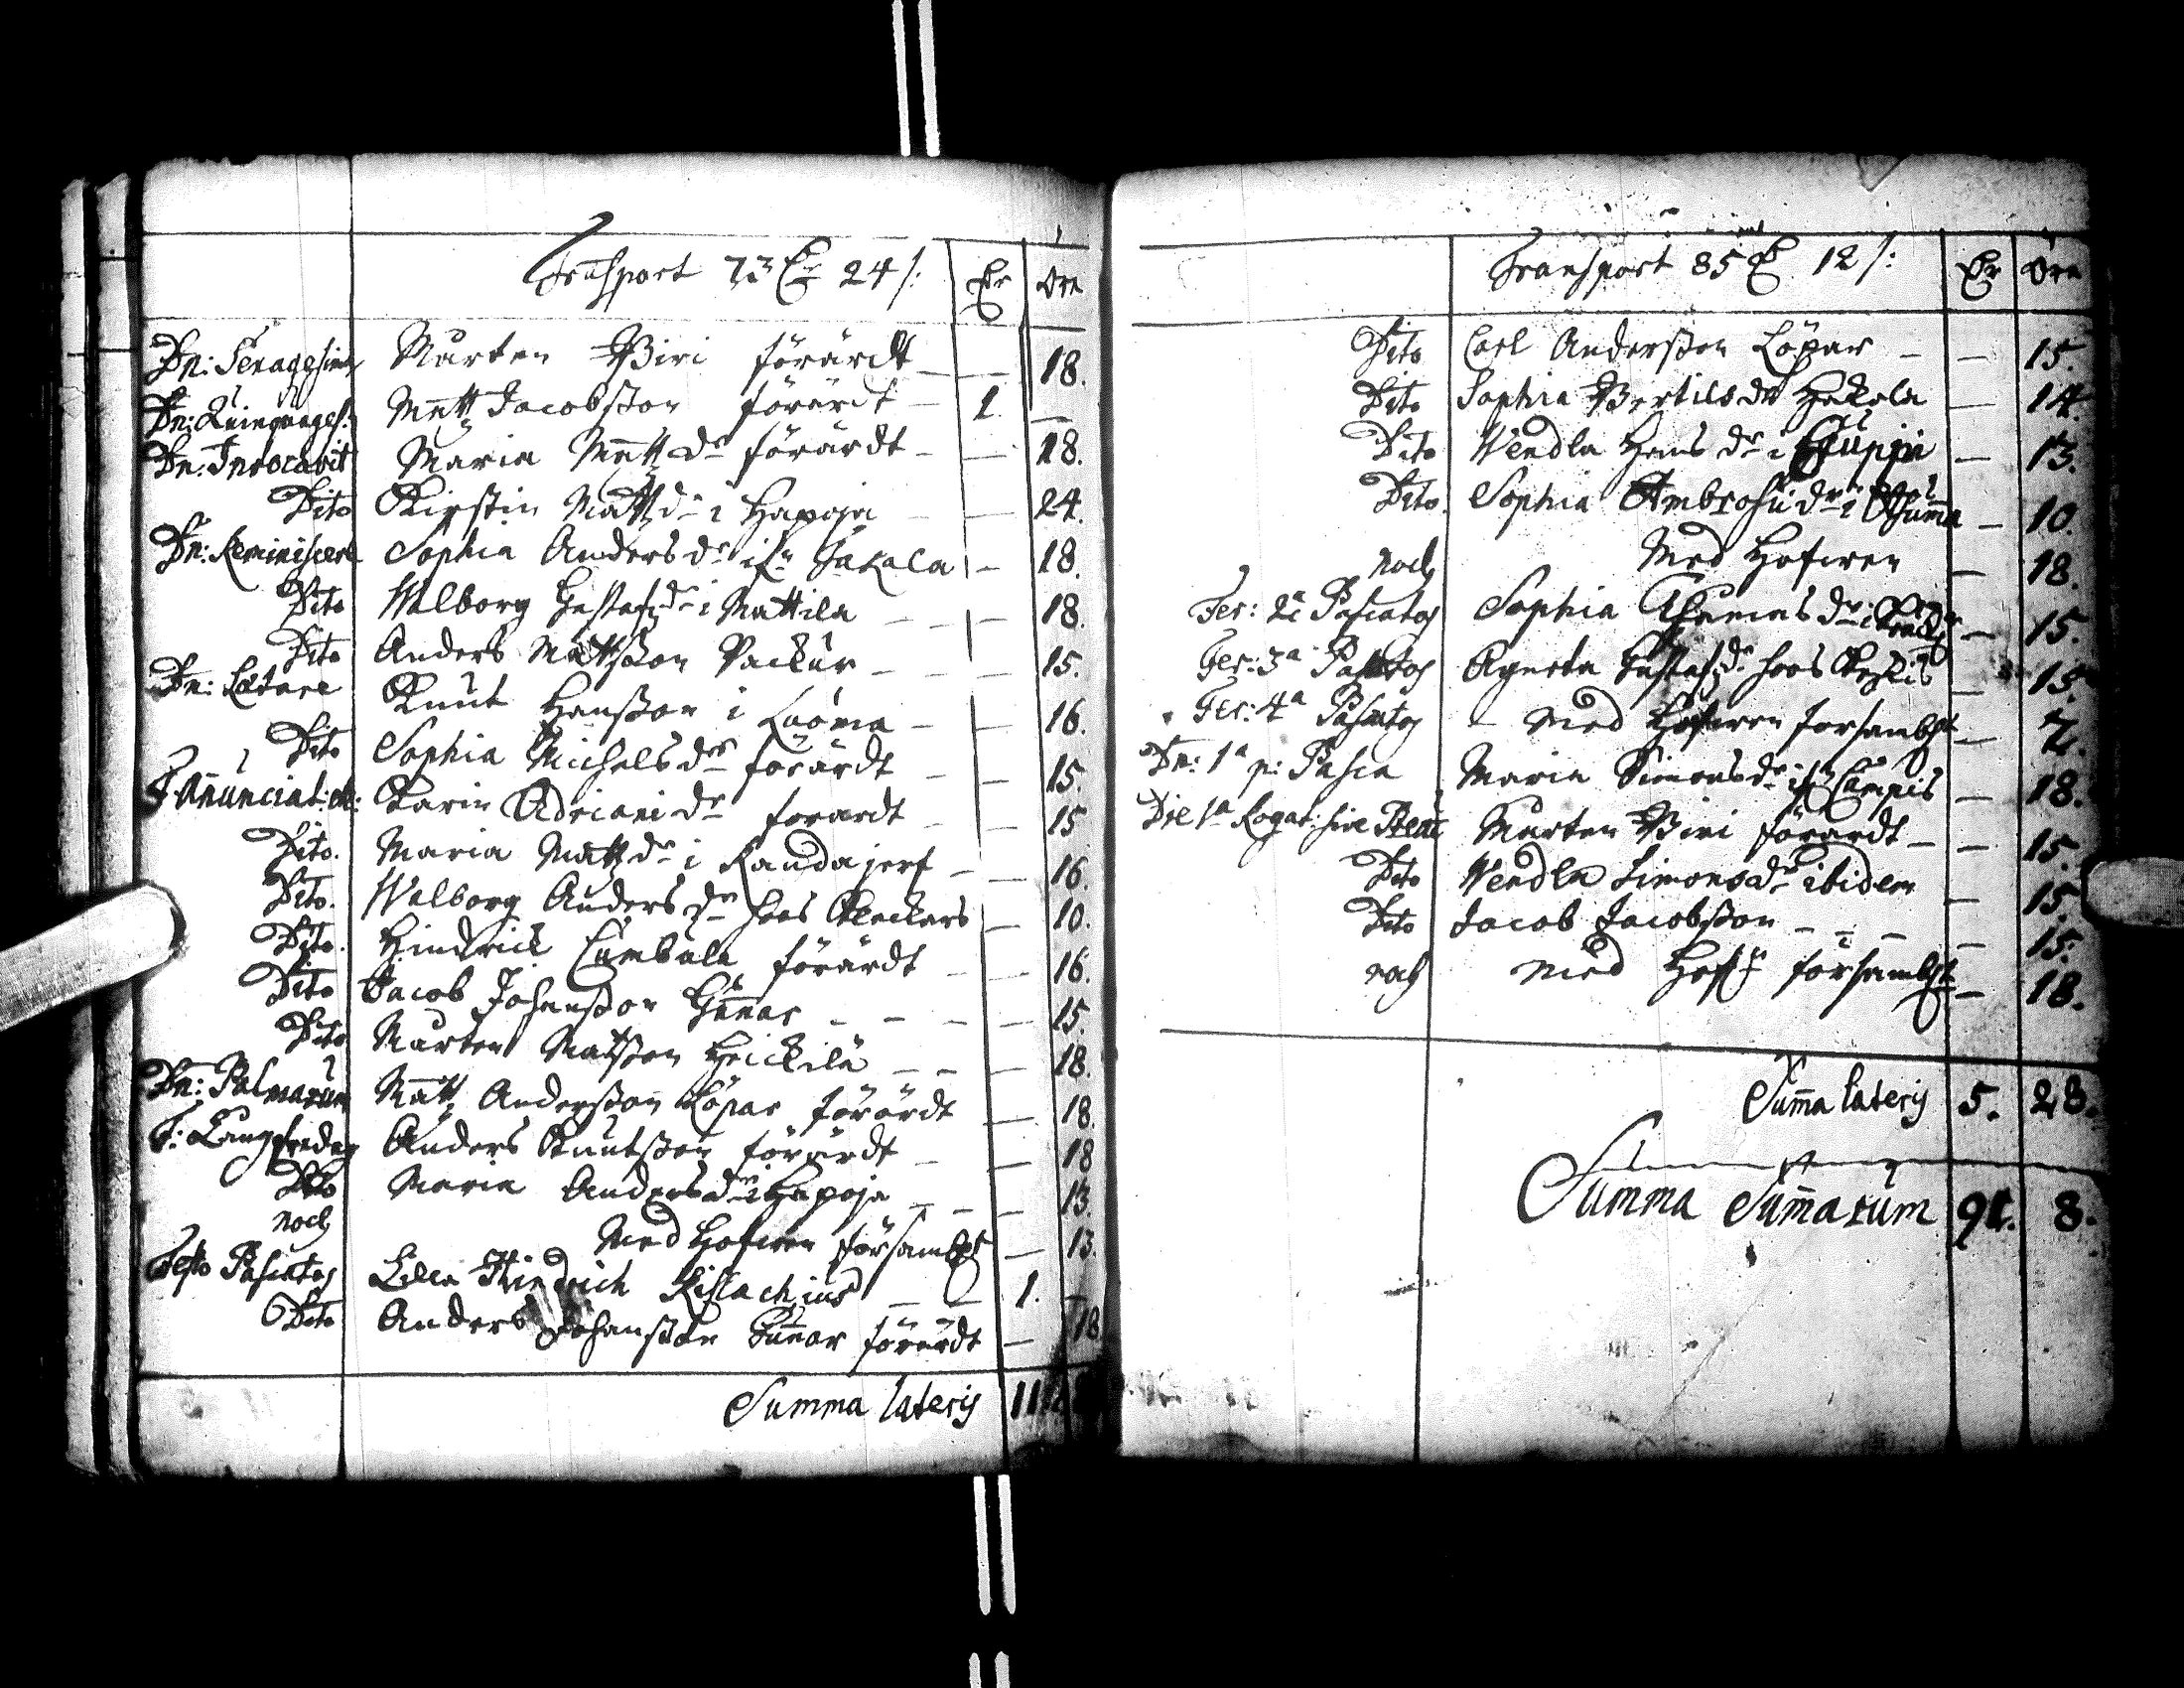 Transport 73 24 /: Öre
Dn: Sexagesima Mårten Biri förärdt — — 18.
Dn: Quinquages: Matz Jacobsson förärdt — 1. —
Dn: Invocavit Maria Matz dr förärdt — — 18.
Dito Kirstin Matz dr i Hapoja — — 24.
Dn: Reminiscere Sophia Anders dr Jakala — 18.
Dito Walborg Gustafz dr i Mattila — — — 18.
Dito Anders Mattsson Packur — — — 15.
Dn: Lætare Knut Hansson i Luoma — — 16.
Dito Sophia Michels dr förärdt — — 15.
F. Annunciat: Karin Adriani dr förardt — 15
Dito. Maria Matz dr i Randajerf — — 16.
Dito. Walborg Anders dr hoos Kleckars — 10.
Dito. Hindrich Cumbula förärdt — — 16.
Dito Jacob Johansson Gunnar — — — — 15.
Dito Mårten Matsson Heickilä — — — 18.
Dn: Palmarum Matz Andersson Löpar förärdt — 18.
F: Långfredag Anders Knutsson förärdt — — 18
Dito Maria Anders dr i Hapoja — — — 13.
noch Med Hofwen församblt — 13.
Festo Paschatos Hindrich Kislachius — — 1. —
Dito Anders Johansson Gunnar förärdt — 18
Summa lateris 11
Transport 85 12 /: Öre
Dito Carl Andersson Löpar — — 15.
Dito Sophia Bertils dr Hakola — 14.
Dito Wendla Hans dr i — 13.
Dito. Sophia Ambrosii dr i — 10.
noch Med Hofwen — 18.
Fer: 2a Paschatos Sophia Thomas dr i — 15.
Fer: 3a Paschatos Agneta Gustafz dr hoos — 15.
Fer: 4a Paschatos — Med Hofwen forsamblt — 7.
Dn: 1a p: Pascha Maria Simons dr Campis — 18.
Die 1a Rogat: sive Mårten Biri förardt — — 15.
Dito Wendla Simons dr ibidem — 15.
Dito Jacob Jacobsson — — — — 15.
noch Med Hofn forsamblt — 18.
Summa lateris 5. 28.
Summa Summarum 91. 8.